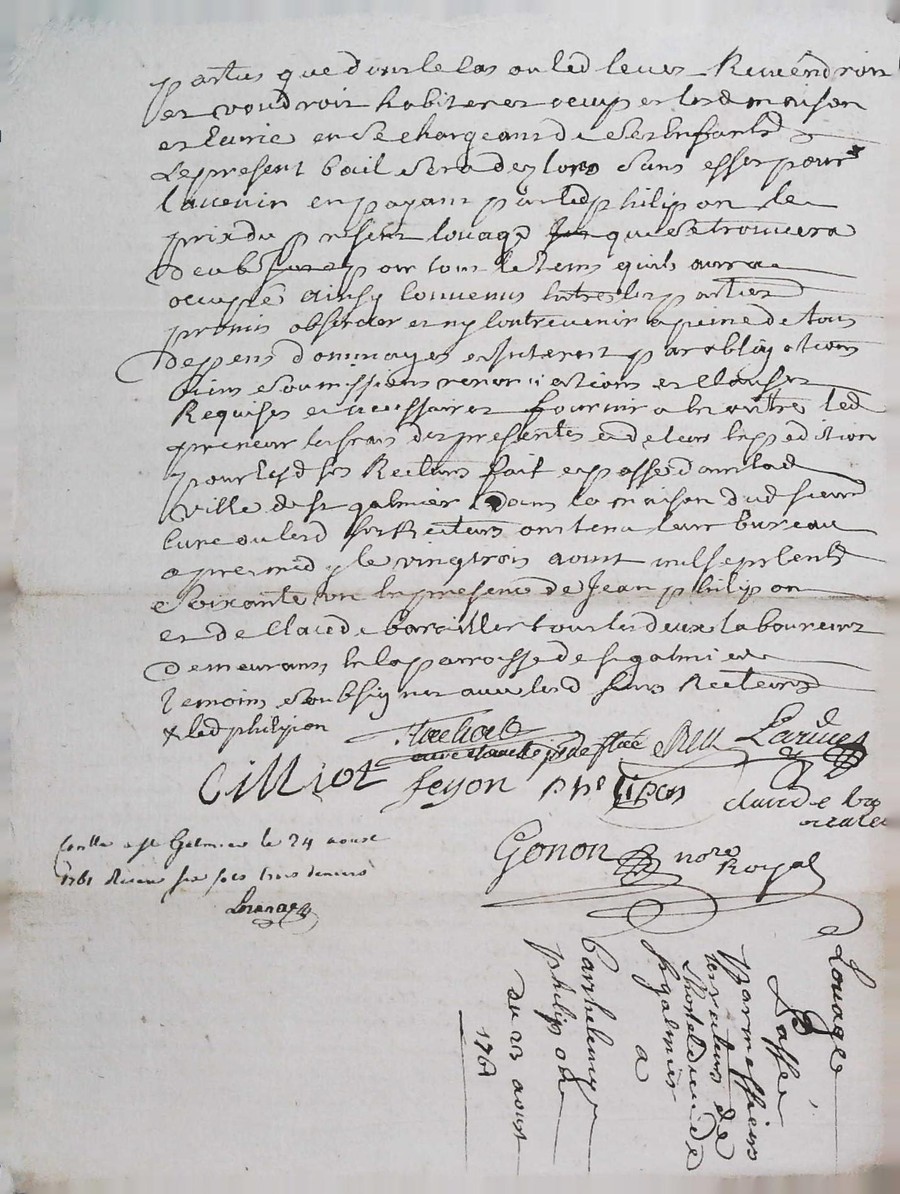 parties que dans le cas ou led leues Reviendroit
et voudroit habiter et occuper lesd maison
et Curie en se chargeant de ses Enfants
Le present bail sera dez lors sans effet pour
l'avenir en payant par led philipon le
prix du present louage que se trouvera
deub pour tout le tems qu'il aura
occupé ainsy convenus entre les parties
promis observer et ny contrevenir a peine de tous
depens dommages et interest par obligations
biens soumissions renonciations et clauses
Requises et necessaires fournir a led
preneur les frais des presentes et de leur Expedition
pour lesd srs Recteurs fait et passé dans lad
ville de st galmier dans la maison dud sieur
Curé ou lesd srs Recteurs ont tenu leur bureau
apres midy le vingtrois aoust mil sept cents
soixante un En presence de Jean philipon
et de Claude barailler tous les deux laboureurs
demeurants En la parroisse de st galmier
temoins soubsignes avec lesd sieurs Recteurs
& led philipon
Cilliot feyon philipon claude ba
Gonon nore Royal
Conllé a st Galmier le 24 aoust
1761 Receu six sols trois deniers
Louage
Passé
par messieurs
recteurs de
l'hotel dieu de
st galmier
a
Barthelemy
philipon
du 23 aoust
1761